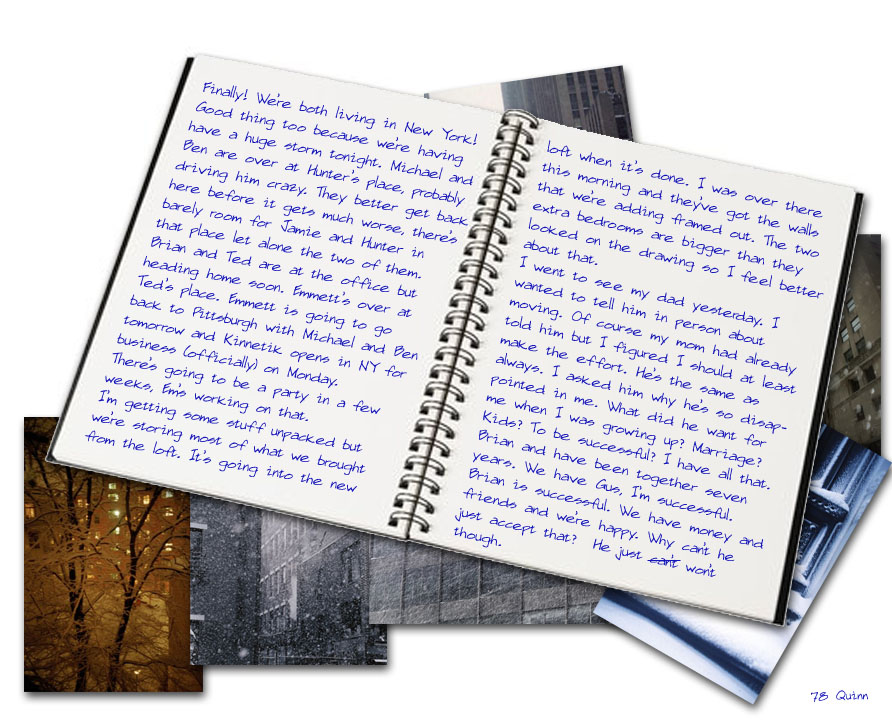 Finally! We're both living in New York!
Good thing too because we're having
have a huge storm tonight. Michael and
Ben are over at Hunter's place, probably
driving him crazy. They better get back
here before it gets much worse, there's
barely room for Jamie and Hunter in
that place let alone the two of them.
Brian and Ted are at the office but
heading home soon. Emmett's over at
Ted's place. Emmett is going to go
back to Pittsburgh with Michael and Ben
tomorrow and Kinnetik opens in NY for
business (officially) on Monday.
There's going to be a party in a few
weeks, Em's working on that.
I'm getting some stuff unpacked but
we're storing most of what we brought
from the loft. It's going into the new
loft when it's done. I was over there
this morning and they've got the walls
that we're adding framed out. The two
extra bedrooms are bigger than they
looked on the drawing so I feel better
about that.
I went to see my dad yesterday. I
wanted to tell him in person about
moving. Of course my mom had already
told him but I figured I should at least
make the effort. He's the same as
always. I asked him why he's so disap-
pointed in me. What did he want for
me when I was growing up? Marriage?
Kids? To be successful? I have all that.
Brian and have been together seven
years. We have Gus, I'm successful.
Brian is successful. We have money and
friends and we're happy. Why can't he
just accept that? He just can't won't
though.
78 Quinn